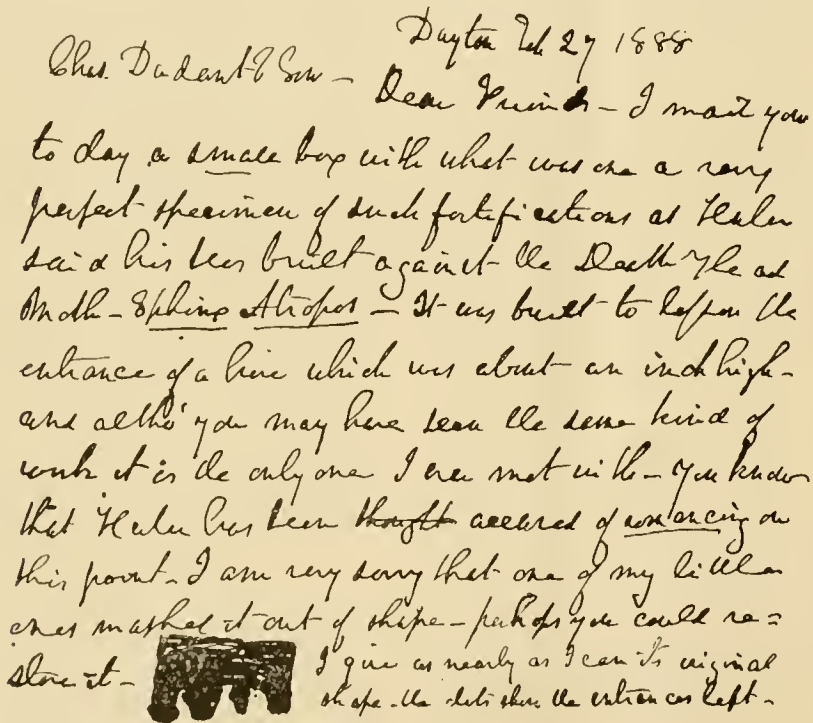 Dayton Feb 27 1888
Chas. Dadant & Son —
Dear Friends — I mail you
to day a small box with what was once a very
perfect specimen of such fortifications as Huber
said his bees built against the Death Head
Moth — Sphinx Atropos — It was built to lessen the
entrance of a hive which was about an inch high —
and altho' you may have seen the same kind of
work it is the only one I ever met with — You know
that Huber has been thought accused of romancing on
this point — I am very sorry that one of my little
ones mashed it out of shape — perhaps you could re=
store it —
I give as nearly as I can its original
shape — the dots show the entrances left —